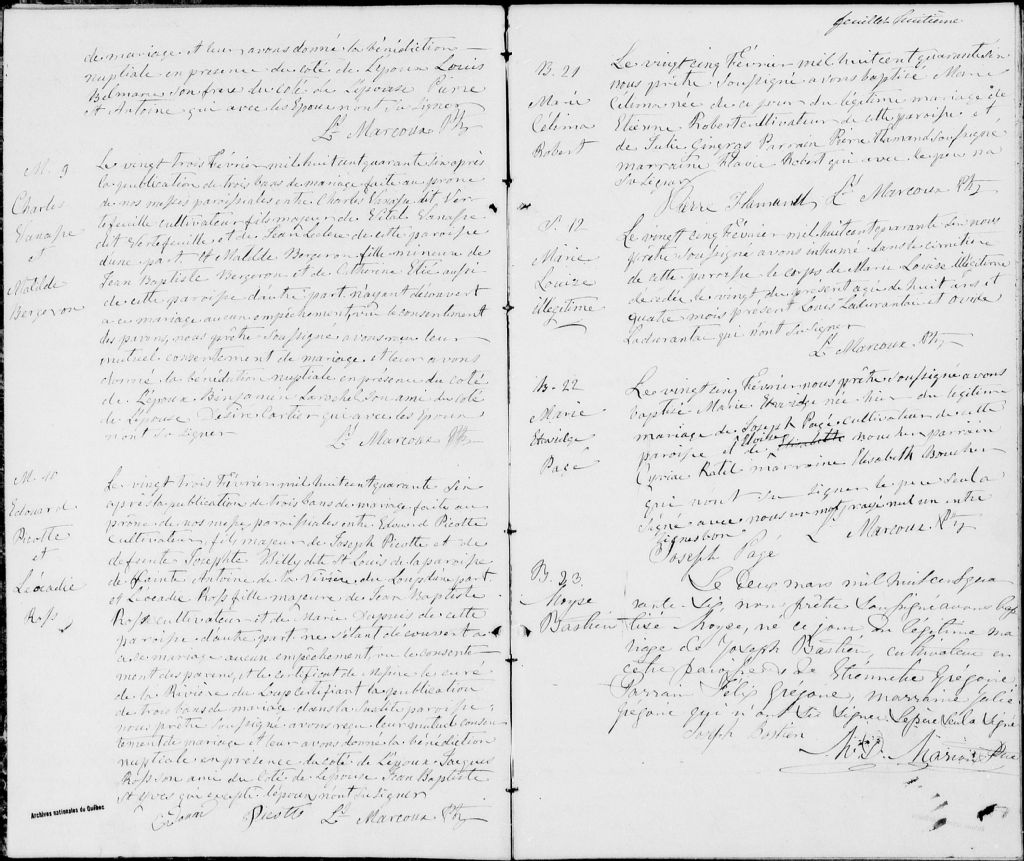 de mariage et leur avons donné la bénédiction
nuptiale en presence du coté de l'époux Louis
Belmare son frere du coté de l'épouse Pierre
St Antoine qui avec les Epoux n'ont su signer
Lt Marcoux Ptr
M. 9
Charles
Vanasse
et
Matilde
Bergeron
Le vingt trois Février mil huit cent quarante six après
la publication de trois bans de mariage faite au prône
de nos messes paroissiales entre Charles Vanasse dit Ver-
tefeuille cultivateur fils majeur de Vital Vanasse
dit Vertefeuille et de Leclere de cette paroisse
d'une part et Matilde Bergeron fille mineure de
Jean Baptiste Bergeron et de Catherine Elie aussi
de cette paroisse d'autre part n'ayant découvert
a ce mariage aucun empêchement vu le consentement
des parens, nous prêtre soussigné avons reçu leur
mutuel consentement de mariage et leur avons
donné la bénédiction nuptiale en présence du coté
de l'époux Benjamin Laroche son ami du coté
de l'épouse Désiré Cartier qui avec les époux
n'ont su signer
Lt Marcoux Ptr
M. 10
Edouard
Picotte
et
Léocadie
Ross
Le vingt trois Février mil huit cent quarante six
après la publication de trois bans de mariage faite au
prône de nos messe paroissiales entre Edouard Picotte
Cultivateur, fils majeur de Joseph Picotte et de
defeinte Josephte Willy dit St Louis de la paroisse
de Sainte Antoine de la rivière du Loup d'une part
et Léocadie Ross fille majeure de Jean Baptiste
Ross cultivateur et de Marie Dupuis de cette
paroisse d'autre part ne s'étant découvert a
ce mariage aucun empêchement, vu le consente-
ment des parens, et le certificat de Messire le curé
de la Rivière du Loup certifiant la publication
de trois bans de mariage dans la susdite paroisse;
nous prêtre soussigné avons reçu leur mutuel consen
tement de mariage et leur avons donné la bénédiction
nuptiale en presence du coté de l'époux Jacques
Ross son ami du coté de l'épouse Jean Baptiste
St Yves qui excepté l'époux n'ont su signer
Edouar Picotte Lt Marcoux Ptr
Archives nationales du Québec
feuillet huitième
B. 21
Marie
Célima
Robert
Le vingt cinq Février mil huit cent quarante six
nous prêtre soussigné avons baptisé Marie
Célima née de ce jour du légitime mariage de
Etienne Robert cultivateur de cette paroisse et
de Julie Gingras Parrain Pierre Flamand soussigné
marraine Flavie Robert qui avec le pere na
su signer
Pierre Flamand Lt Marcoux Ptr
S. 12
Marie
Louise
illégitime
Le vingt cinq Février mil huit cent quarante six nous
prêtre soussigné avons inhumé dans le cimetière
de cette paroisse le corps de Marie Louise illégitime
décédée le vingt du présent agée de huit ans et
quatre mois présent Louis Ladurantée et Ovide
Ladurantée qui n'ont su signer
Lt Marcoux Ptr
B. 22
Marie
Edwidge
Pagé
Le vingt cinq Février nous prêtre soussigné avons
baptisé Marie Edwidge née hier du légitime
mariage de Joseph Pagé cultivateur de cette
paroisse et de Elisabeth Boucher parrain
Cyriac marraine Elisabeth Boucher
qui n'ont su signer le pere seul a
signé avec nous un mot rayé nul un entre
lignes bon
Joseph Pagé L Marcoux Ptr
B. 23
Moyse
Bastien
Le deux mars mil huit cent qua
rante six nous prêtre soussigné avons bap
tisé Moyse, né ce jour du légitime ma
riage de Joseph Bastien, cultivateur en
cette paroisse et de Grégoire
Parrain Félix Grégoire, marraine Julie
Grégoire qui n'ont su signer Le père seul a signé
Joseph Bastien
Ptre